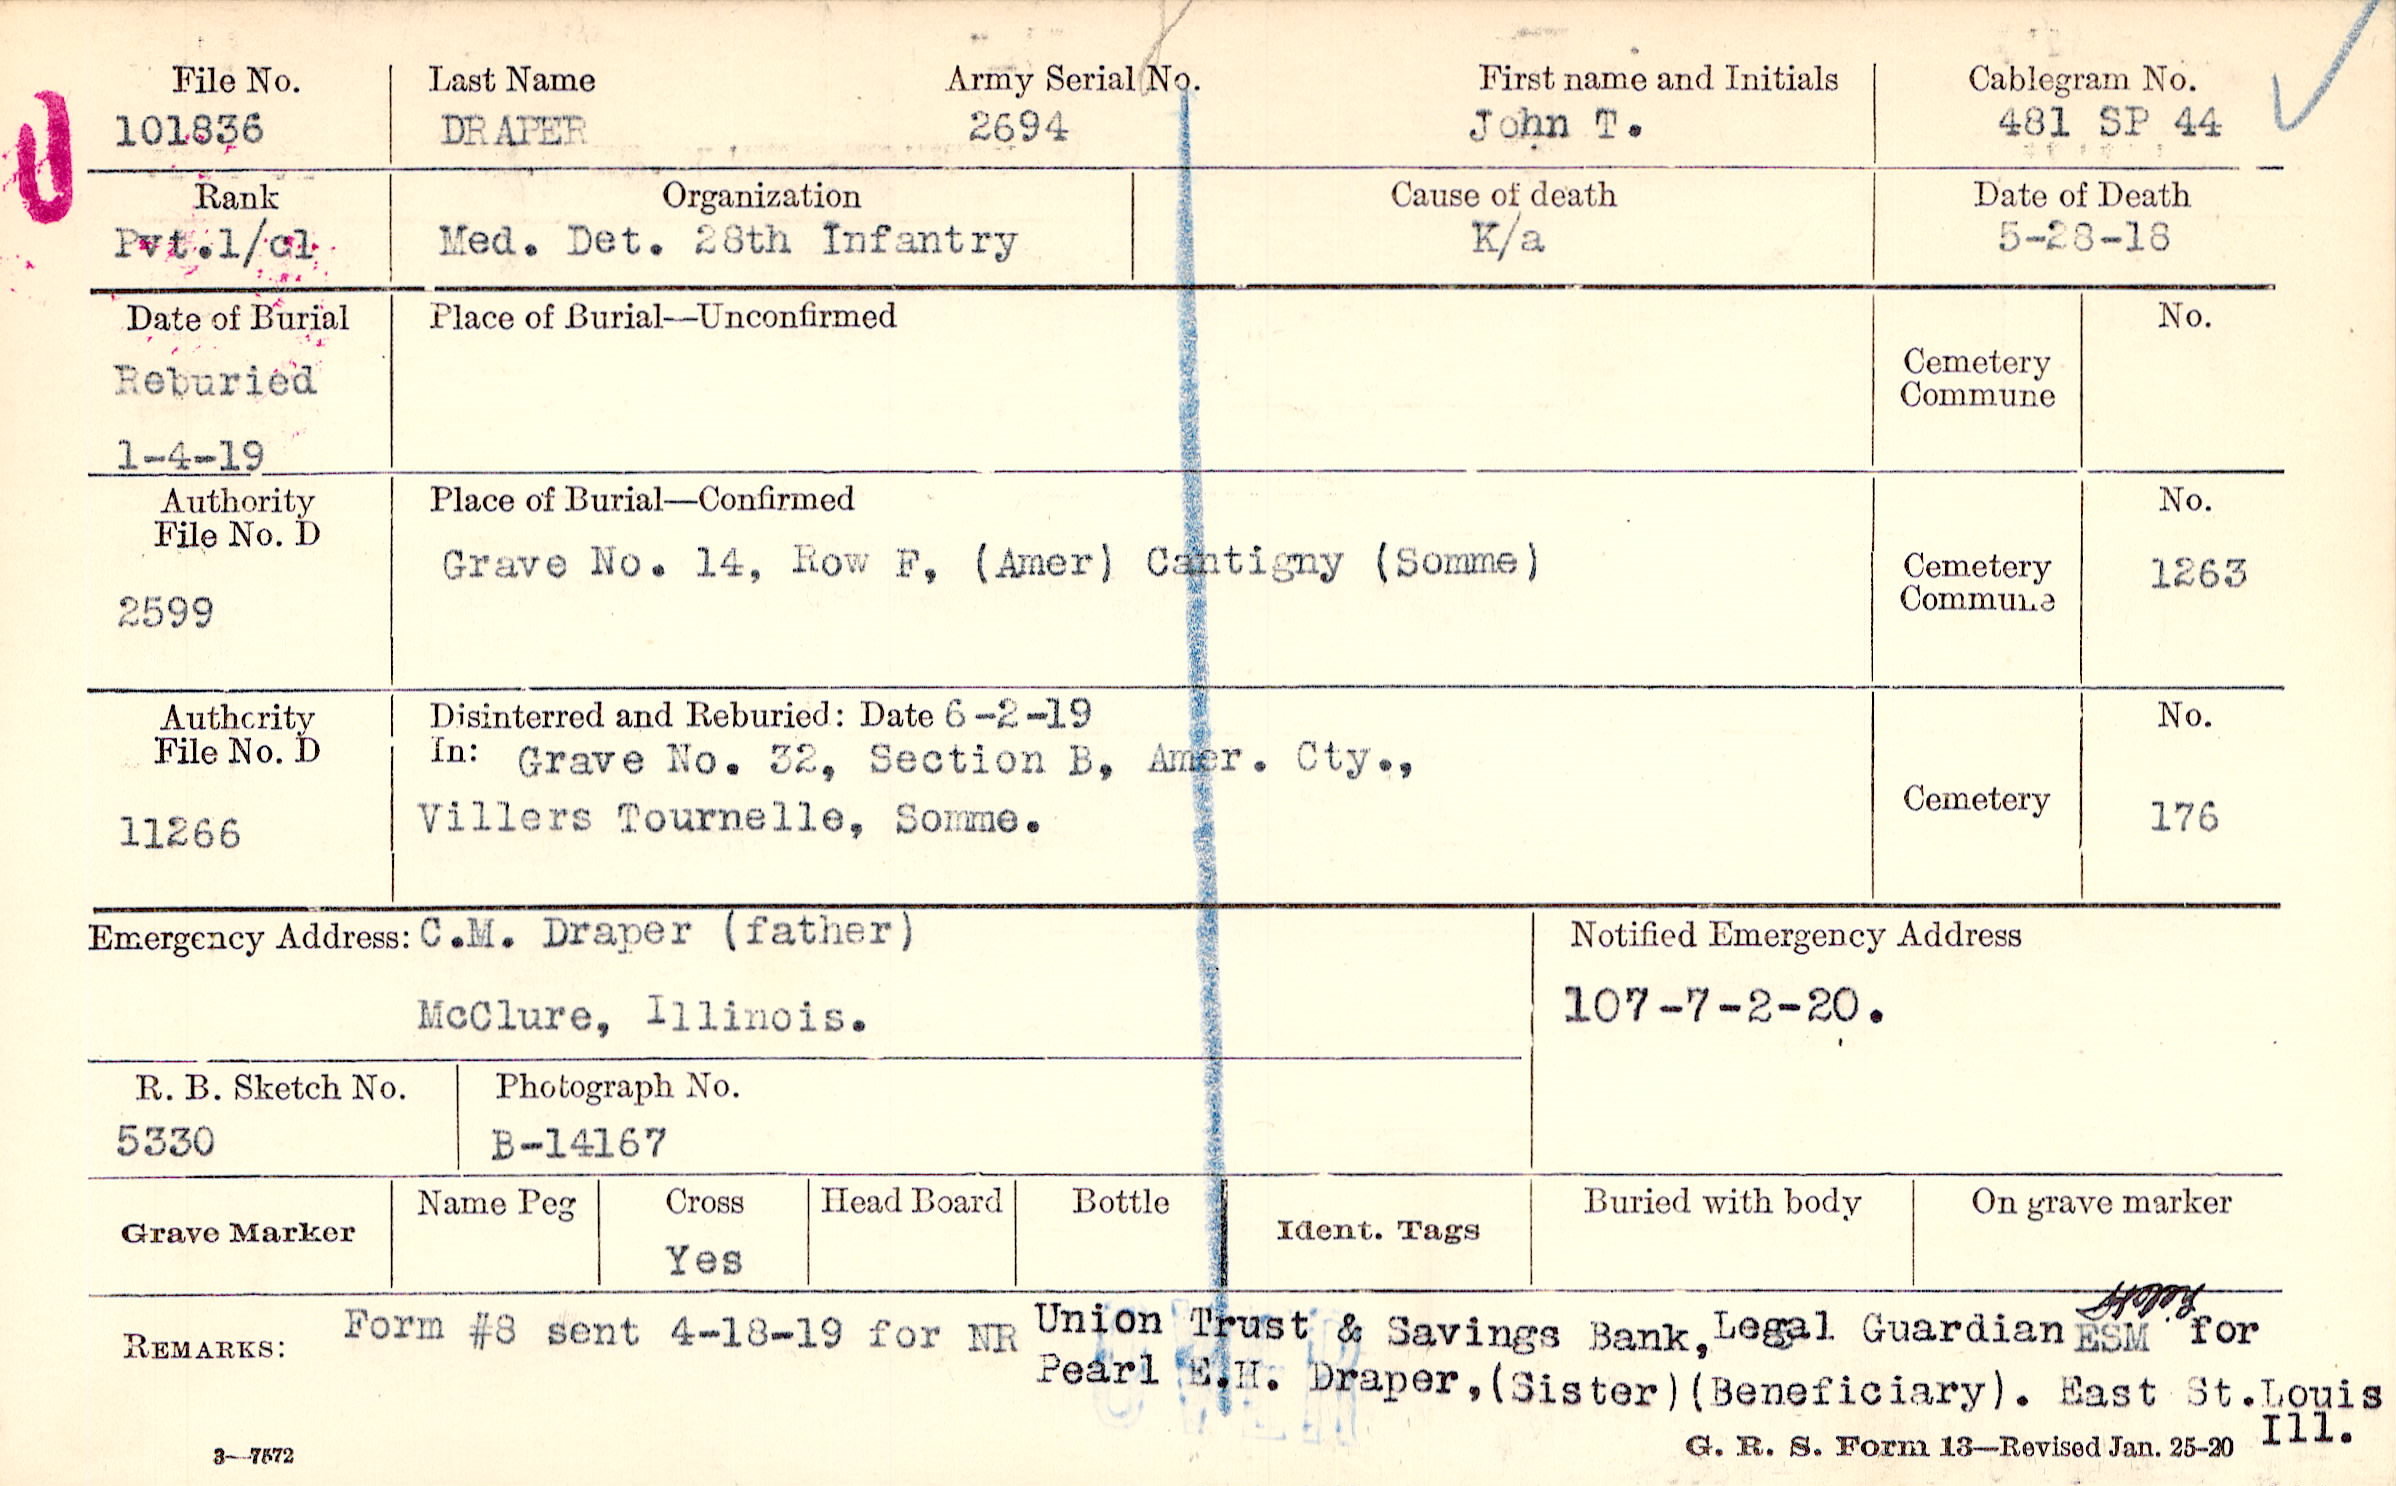 File No. Last Name Army Serial No. First name and Initials Cablegram No.
101836 DRAPER 2694 John T. 481 SP 44
Rank Organization Cause of death Date of Death
Pvt.1/cl Med. Det. 28th Infantry K/a 5-28-18
Date of Burial Place of Burial—Unconfirmed No.
Reburied Cemetery
Commune
1-4-19
Authority Place of Burial—Confirmed No.
File No. D
Grave No. 14, Row F, (Amer) Cantigny (Somme) Cemetery 1263
2599 Commune
Authority Disinterred and Reburied: Date 6-2-19 No.
File No. D In: Grave No. 32, Section B, Amer. Cty.,
11266 Villers Tournelle, Somme. Cemetery 176
Emergency Address: C.M. Draper (father) Notified Emergency Address
McClure, Illinois. 107-7-2-20.
R. B. Sketch No. Photograph No.
5330 B-14167
Grave Marker Name Peg Cross Head Board Bottle Ident. Tags Buried with body On grave marker
Yes
REMARKS: Form #8 sent 4-18-19 for NR Union Trust & Savings Bank, Legal Guardian ESM for
Pearl E.H. Draper,(Sister)(Beneficiary). East St.Louis
Ill.
3—7572 G. R. S. Form 13—Revised Jan. 25-20